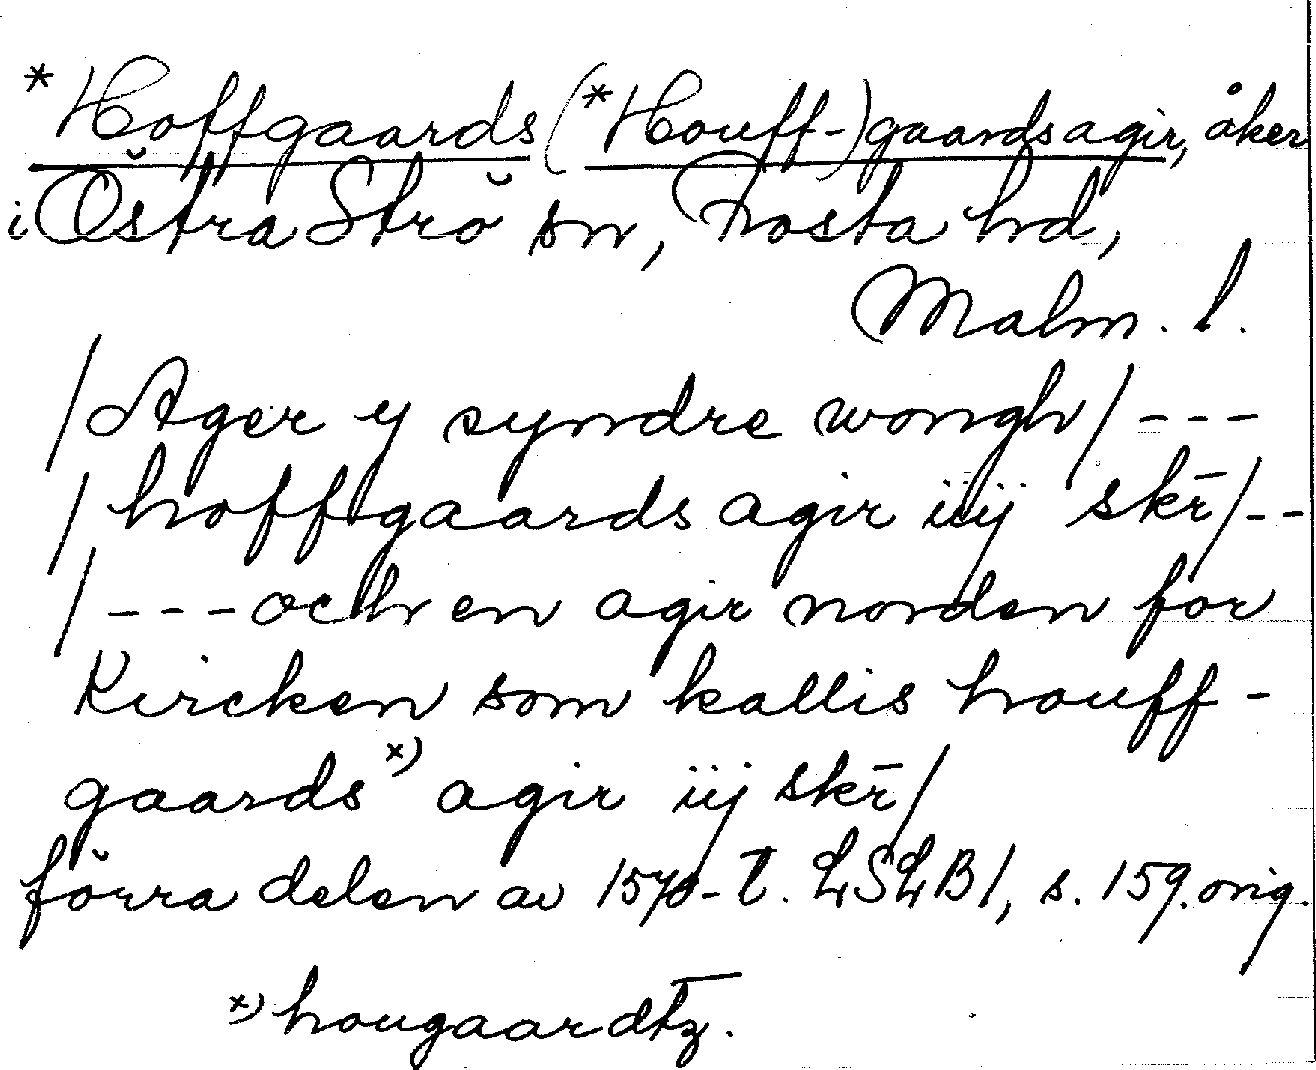 *Hoffgaards (*Houff-)gaardsagir, åker
i Östra Strö sn, Frosta hd,
Malm. l.
/Ager y syndre wongh/---
/hoffgaards agir iiij skr̄/--
/---och en agir norden for
Kircken som kallis houff-
gaards x) agir iij skr̄/
förra delen av 1570-t. LSLB1, s. 159. orig.
x) hougaardtz.